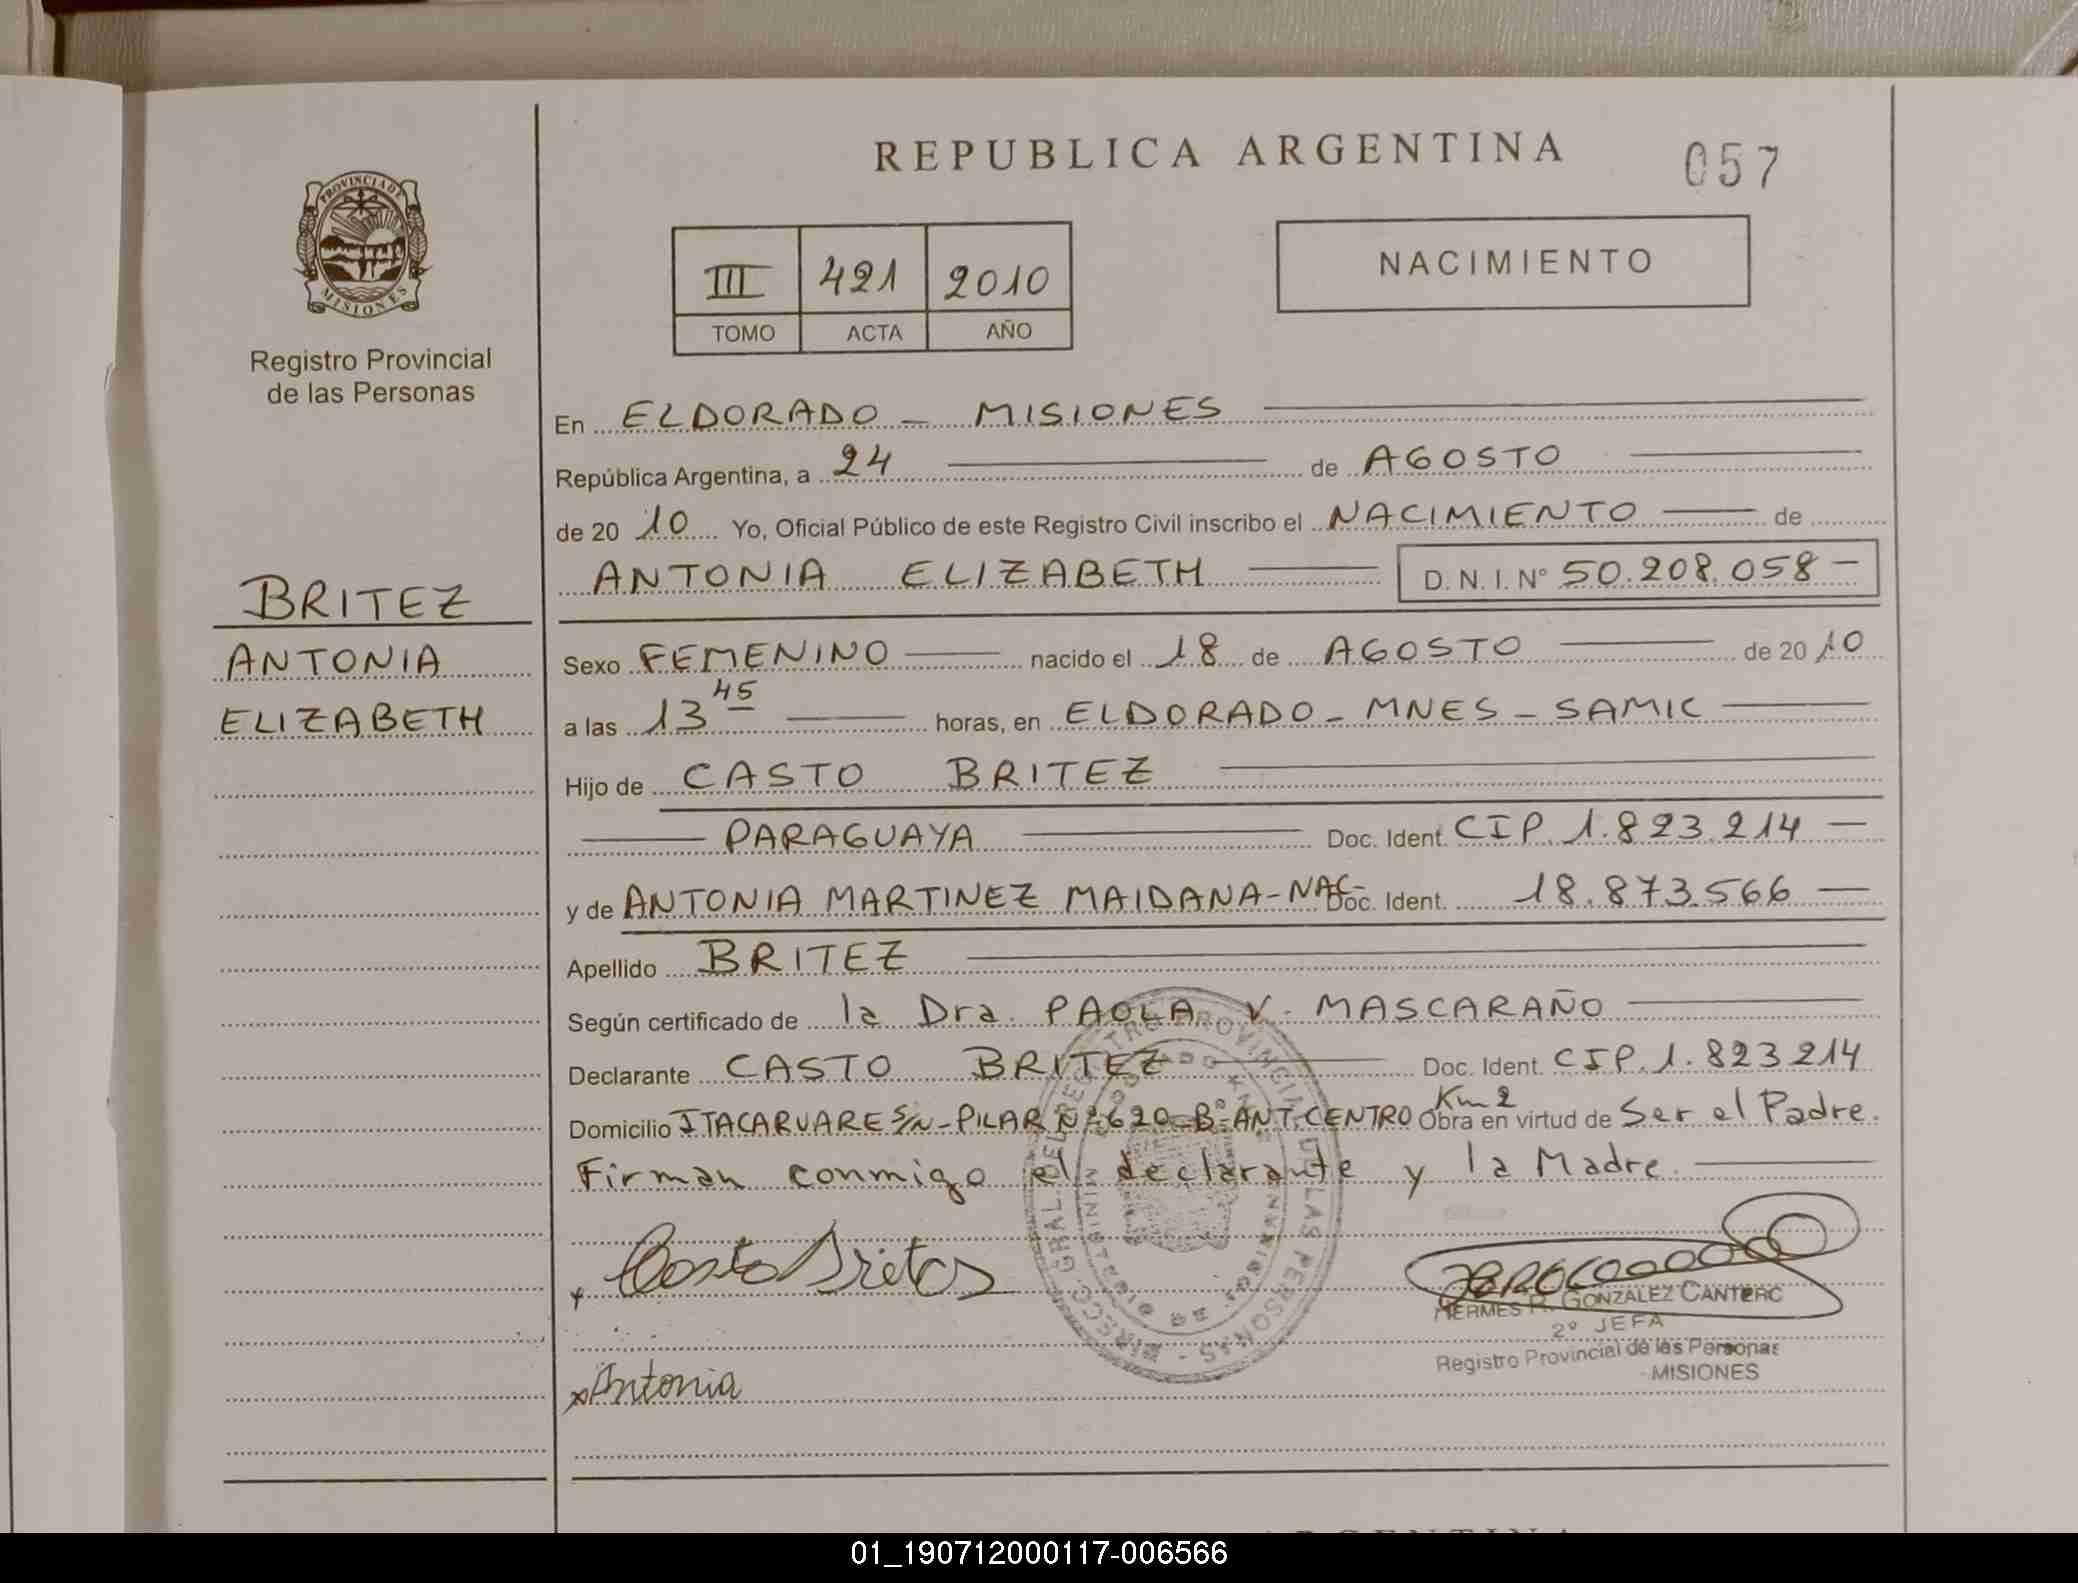 REPUBLICA ARGENTINA
057
PROVINCIA DE
MISIONES
Registro Provincial
de las Personas
III 421 2010
TOMO ACTA AÑO
NACIMIENTO
En ELDORADO - MISIONES
República Argentina, a 24 de AGOSTO
de 20 10 Yo, Oficial Público de este Registro Civil inscribo el NACIMIENTO de
ANTONIA ELIZABETH D. N. I. N° 50.208.058 -
BRITEZ
ANTONIA
ELIZABETH
Sexo FEMENINO nacido el 18 de AGOSTO de 20 10
a las 13 45 horas, en ELDORADO - MNES - SAMIC
Hijo de CASTO BRITEZ
PARAGUAYA Doc. Ident. CIP. 1.823.214 -
y de ANTONIA MARTINEZ MAIDANA - NAC- Doc. Ident. 18.873.566 -
Apellido BRITEZ
Según certificado de la Dra. PAOLA V. MASCARAÑO
Declarante CASTO BRITEZ Doc. Ident. CIP. 1.823 214
Domicilio ITACARUARE S/N - PILAR Nº 620 - Bº ANT. CENTRO Km 2 Obra en virtud de Ser el Padre.
Firman conmigo el declarante y la Madre.
Casto Britez
HERMES R. GONZALEZ CANTERO
2º JEFA
Registro Provincial de las Personas
MISIONES
Antonia
01_190712000117-006566